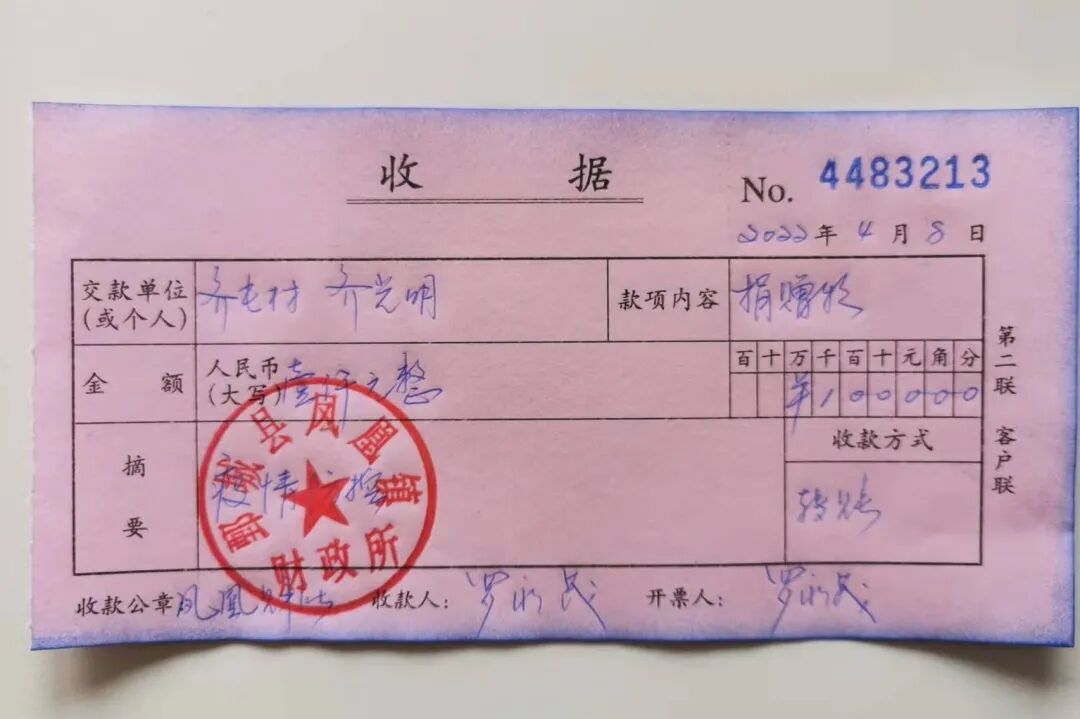 收 据
No. 4483213
2022年4月8日
交款单位
(或个人)
齐屯村 齐光明
款项内容
捐赠款
金 额
人民币
(大写)
壹仟元整
百十万千百十元角分
¥100000
摘 要
疫情防控
收款方式
转账
凤凰镇
财政所
收款公章 凤凰财政
收款人: 罗永民
开票人: 罗永民
第二联 客户联